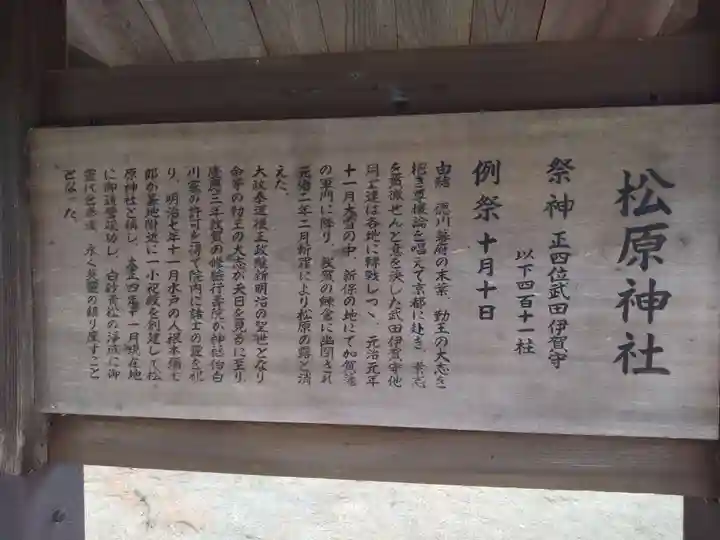 松原神社
祭神 正四位武田伊賀守
以下四百十一柱
例祭 十月十日
由緒 徳川幕府の末葉、勤王の大志を
抱き尊攘論を唱えて京都に赴き、素志
を貫徹せんと意を決した武田伊賀守他
同士達は各地に転戦しつゝ、元治元年
十一月大雪の中、新保の地にて加賀藩
の軍門に降り、敦賀の鰊倉に幽閉され
元治二年二月斬罪により松原の露と消
えた。
大政奉還王政維新明治の聖世となり
命等の勤王の大志が天日を見るに至り
慶應三年敦賀の 行壽院が神祇伯白
川家の許可を得て院内に諸士の霊を祀
り、明治七年十一月水戸の人根本彌七
郎が墓地附近に一小祀殿を創建して松
原神社と称し、大正四年十一月現在地
に御造營竣功し、白砂青松の浄域に御
霊代を奉遷、永く英霊の鎮り座すこと
となった。